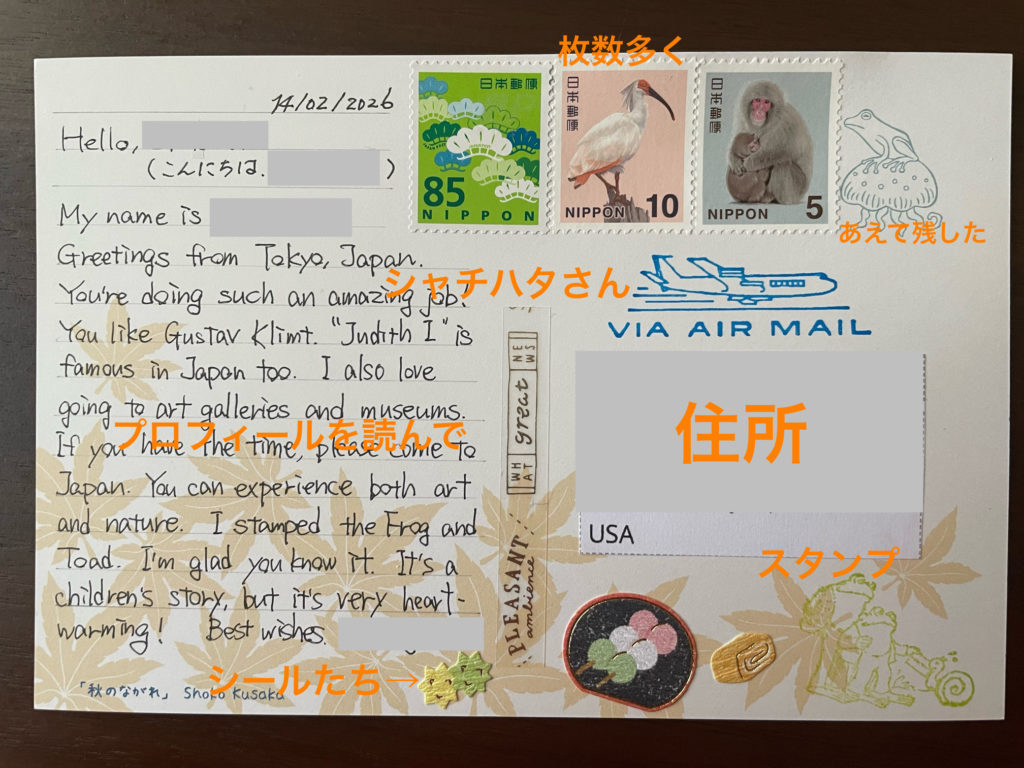 14/02/2026
Hello,
(こんにちは、)
My name is
Greetings from Tokyo, Japan.
You're doing such an amazing job!
You like Gustav Klimt. "Judith I" is
famous in Japan too. I also love
going to art galleries and museums.
If you have the time, please come to
Japan. You can experience both art
and nature. I stamped the Frog and
Toad. I'm glad you know it. It's a
children's story, but it's very heart-
warming! Best wishes.
「秋のながれ」 Shoko Kusaka
プロフィールを読んで
シールたち→
枚数多く
日本郵便
85
NIPPON
日本郵便
NIPPON 10
日本郵便
NIPPON 5
あえて残した
シャチハタさん
VIA AIR MAIL
WHAT great NEWS
PLEASANT!
ambience
住所
USA
スタンプ